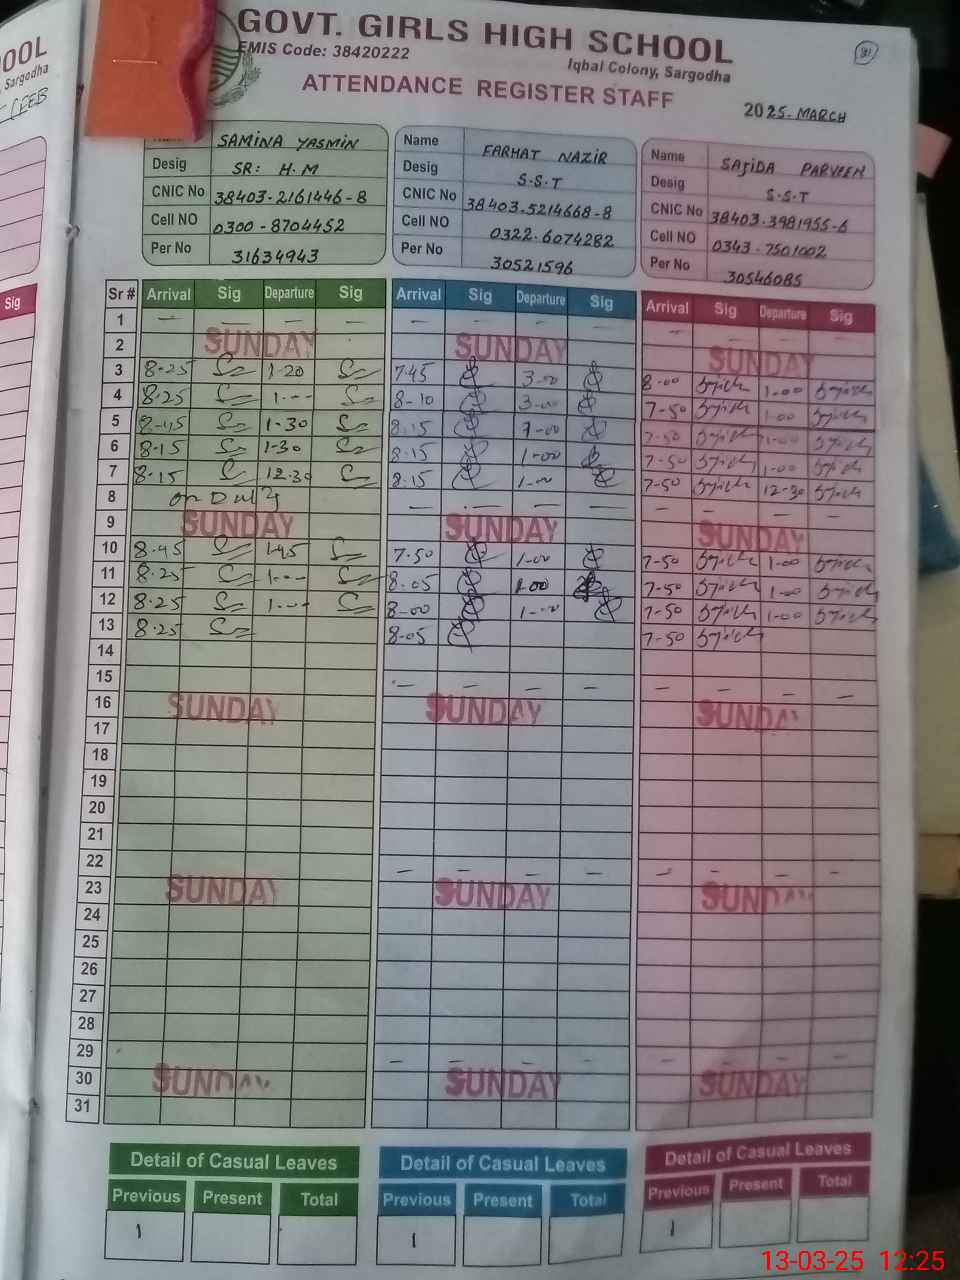 OOL
Sargodha
Sig
GOVT. GIRLS HIGH SCHOOL
EMIS Code: 38420222
Iqbal Colony, Sargodha
ATTENDANCE REGISTER STAFF
2025. MARCH
SAMINA YASMIN
Desig SR: H.M
CNIC No 38403-2161446-8
Cell NO 0300-8704452
Per No 31634943
Name FARHAT NAZIR
Desig S.S.T
CNIC No 38403.5214668-8
Cell NO 0322.6074282
Per No 30521596
Name SAJIDA PARVEEN
Desig S.S.T
CNIC No 38403.3981955-6
Cell NO 0343-7501002
Per No 30546085
Sr # Arrival Sig Departure Sig Arrival Sig Departure Sig Arrival Sig Departure Sig
1 — — — — — — — — —
2 SUNDAY SUNDAY SUNDAY
3 8-25 1-20 7-45 3-00 8-00 1-00
4 8-25 1-- 8-10 3-00 7-50 1-00
5 8-45 1-30 8-15 7-00 7-50 1-00
6 8-15 1-30 8-15 1-00 7-50 1-00
7 8-15 12.30 8-15 1-00 7-50 12-30
8 on Duty — — — — — — — —
9 SUNDAY SUNDAY SUNDAY
10 8-45 1-45 7-50 1-00 7-50 1-00
11 8-25 1-- 8-05 1-00 7-50 1-00
12 8-25 1-- 8-00 1-- 7-50 1-00
13 8-25 8-05 7-50
14
15 — — — — — — — —
16 SUNDAY SUNDAY SUNDAY
17
18
19
20
21
22 — — — — — — — —
23 SUNDAY SUNDAY SUNDAY
24
25
26
27
28
29 — — — — — — — —
30 SUNDAY SUNDAY SUNDAY
31
Detail of Casual Leaves Detail of Casual Leaves Detail of Casual Leaves
Previous Present Total Previous Present Total Previous Present Total
1 1 1
13-03-25 12:25